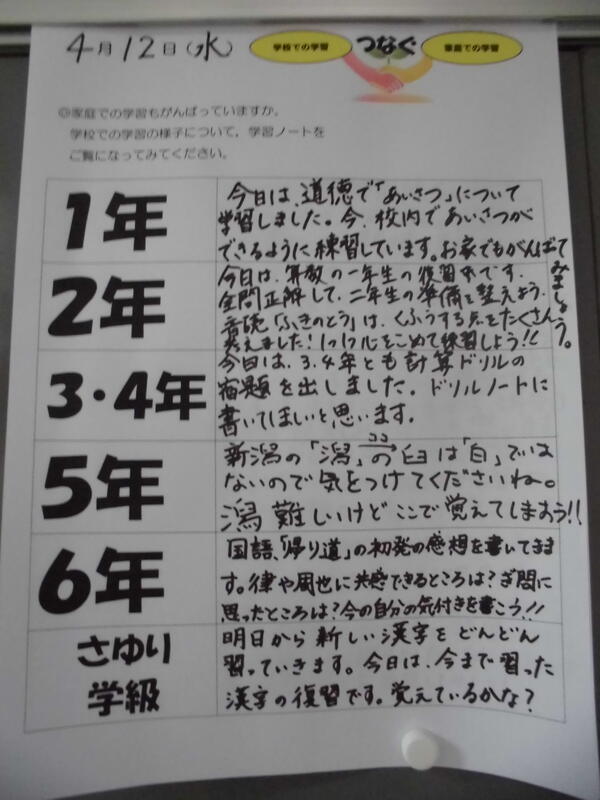 4月12日(水)
学校での学習
つなぐ
家庭での学習
◎家庭での学習もがんばっていますか。
学校での学習の様子について、学習ノートを
ご覧になってみてください。
1年
今日は、道徳で「あいさつ」について
学習しました。今、校内であいさつが
できるように練習しています。お家でもがんばって
みましょう。
2年
今日は、算数の一年生の復習です。
全問正解して、二年生の準備を整えよう。
音読「ふきのとう」は、くふうする点をたくさん
考えました!1つ1つ心をこめて練習しよう!!
3・4年
今日は、3、4年とも計算ドリルの
宿題を出しました。ドリルノートに
書いてほしいと思います。
5年
新潟の「潟」の臼は「白」では
ココ
ないので気をつけてくださいね。
潟難しいけどここで覚えてしまおう!!
6年
国語、「帰り道」の初発の感想を書いてきま
す。律や周也に共感できるところは?ぎ問に
思ったところは?今の自分の気付きを書こう!!
さゆり
学級
明日から新しい漢字をどんどん
習っていきます。今日は、今まで習った
漢字の復習です。覚えているかな?